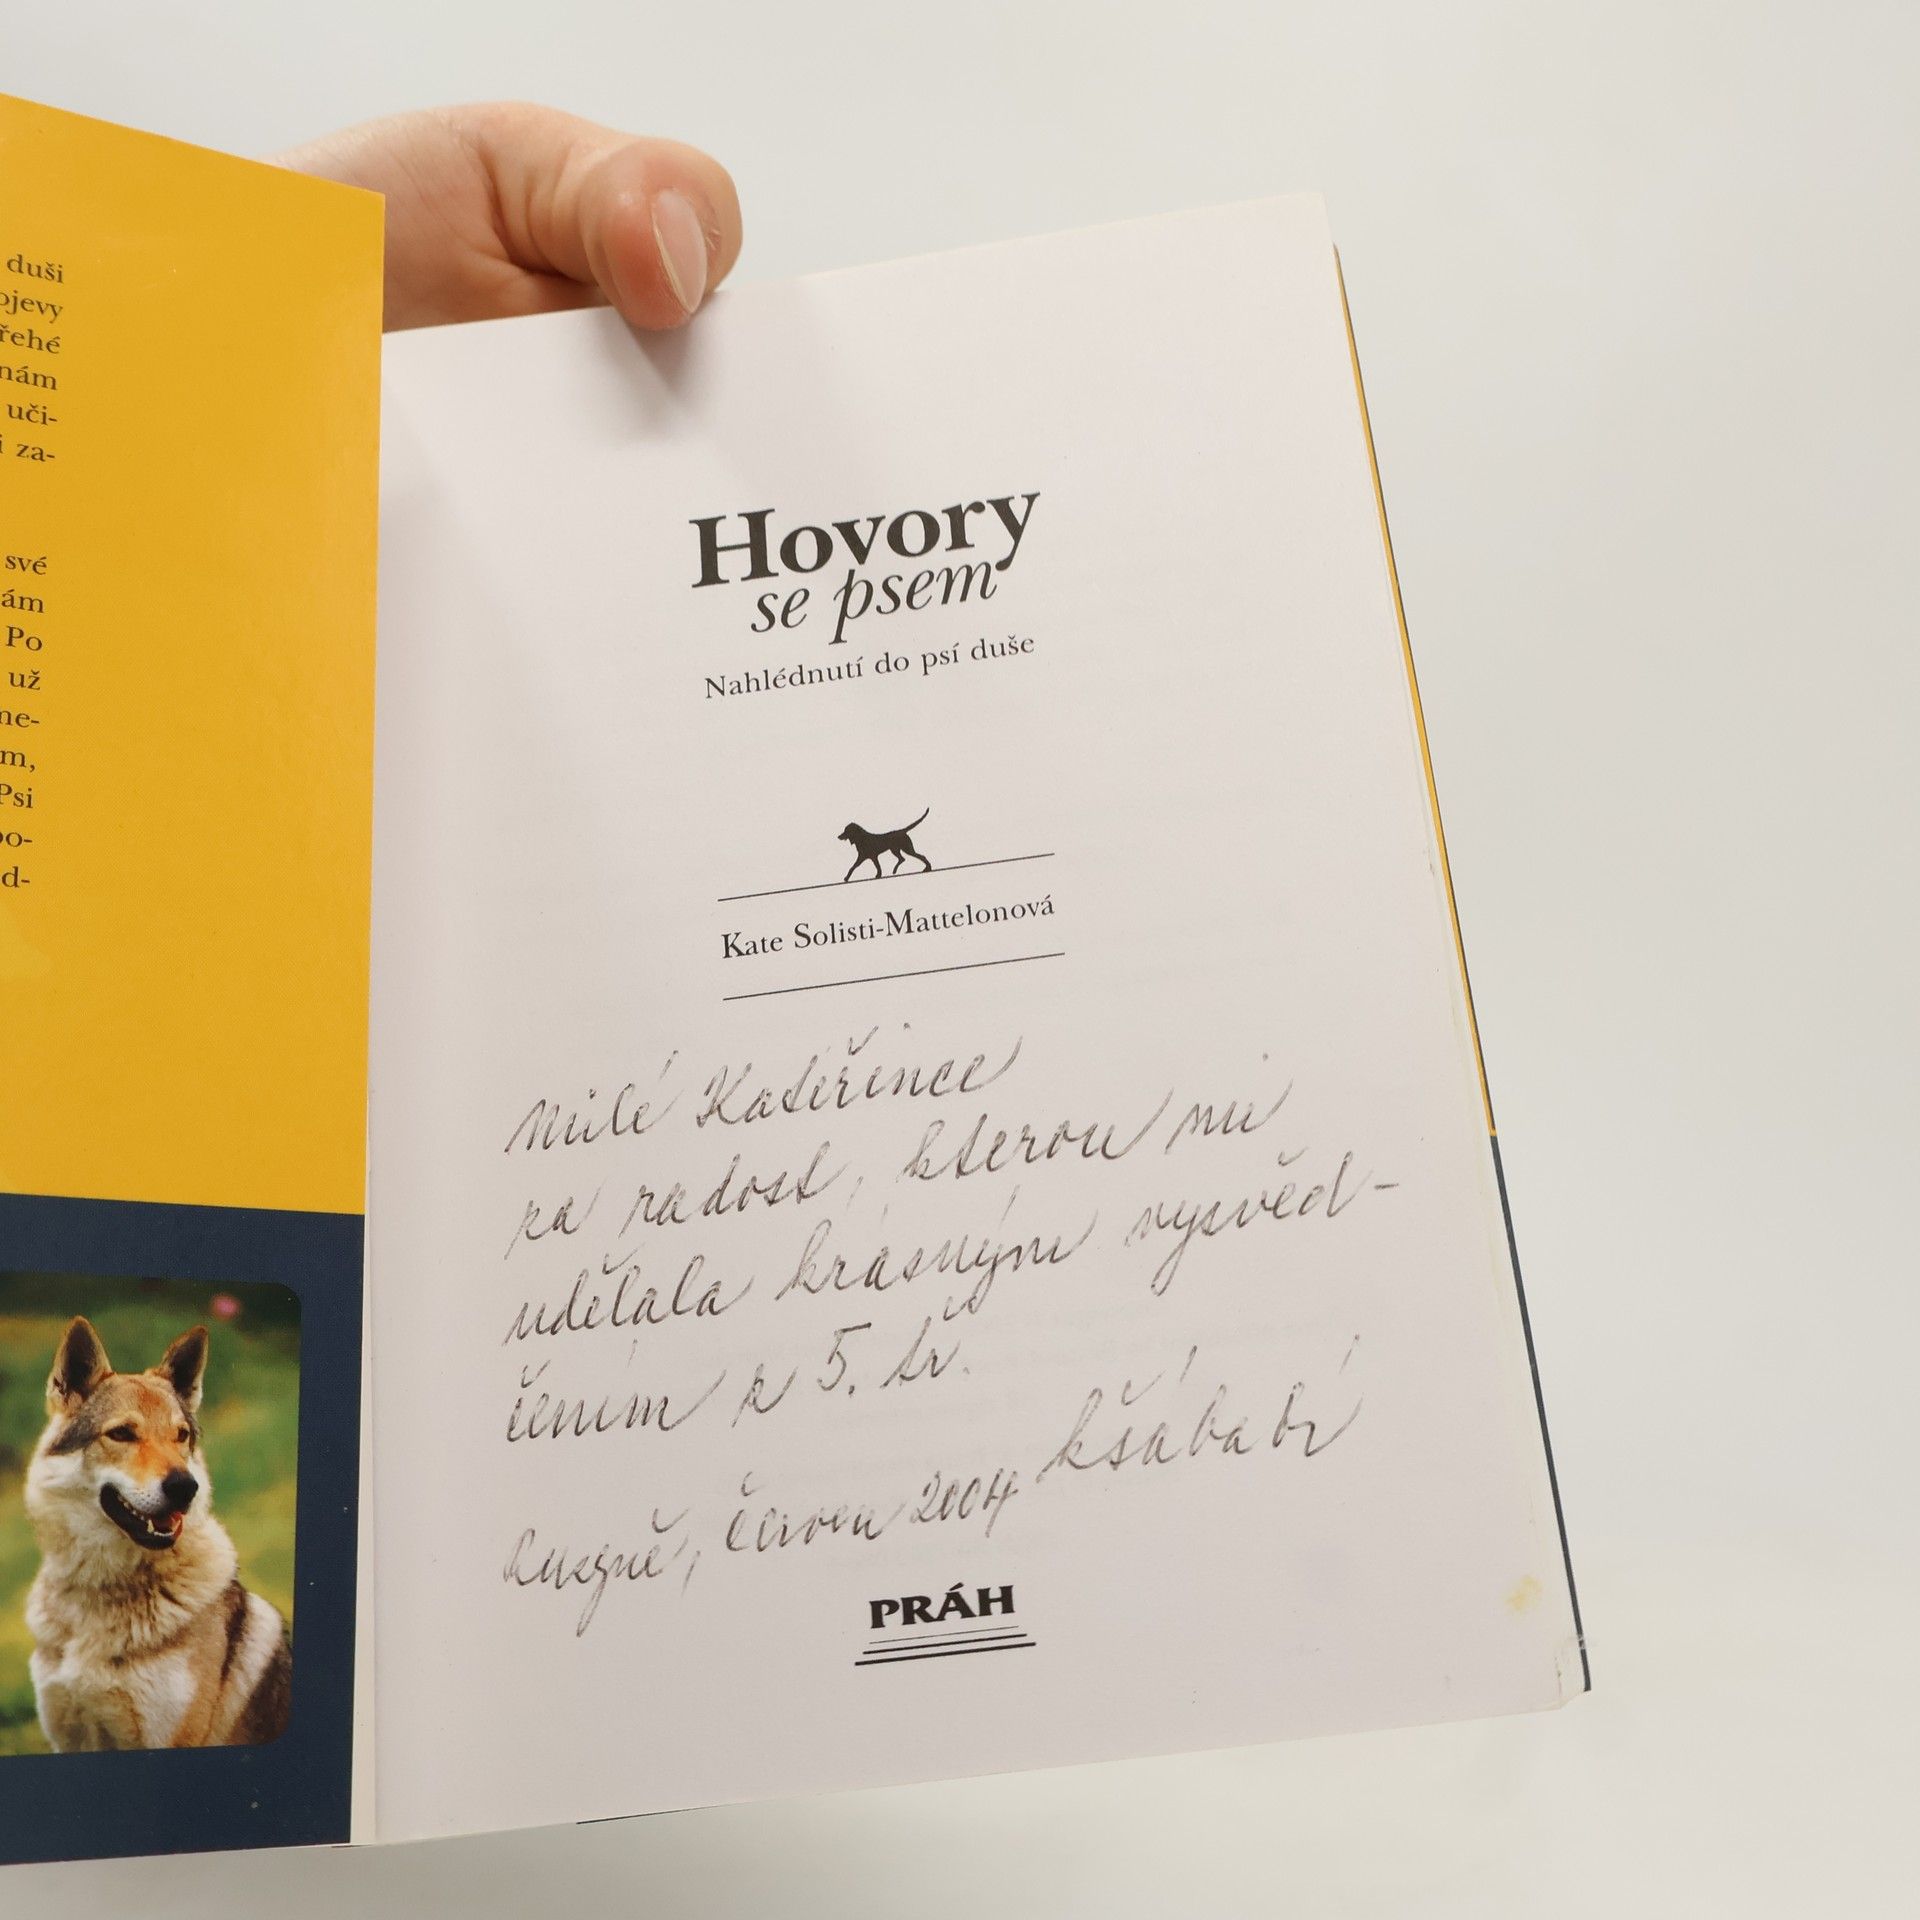 duši
ojevy
řehé
nám
uči-
i za-
své
ám
Po
už
me-
m,
Psi
po-
d-
Hovory
se psem
Nahlédnutí do psí duše
Kate Solisti-Mattelonová
Milé Kateřince
za radost, kterou mi
udělala krásným vysvěd-
čením z 5. tř.
Ruzyně, červen 2004
PRÁH